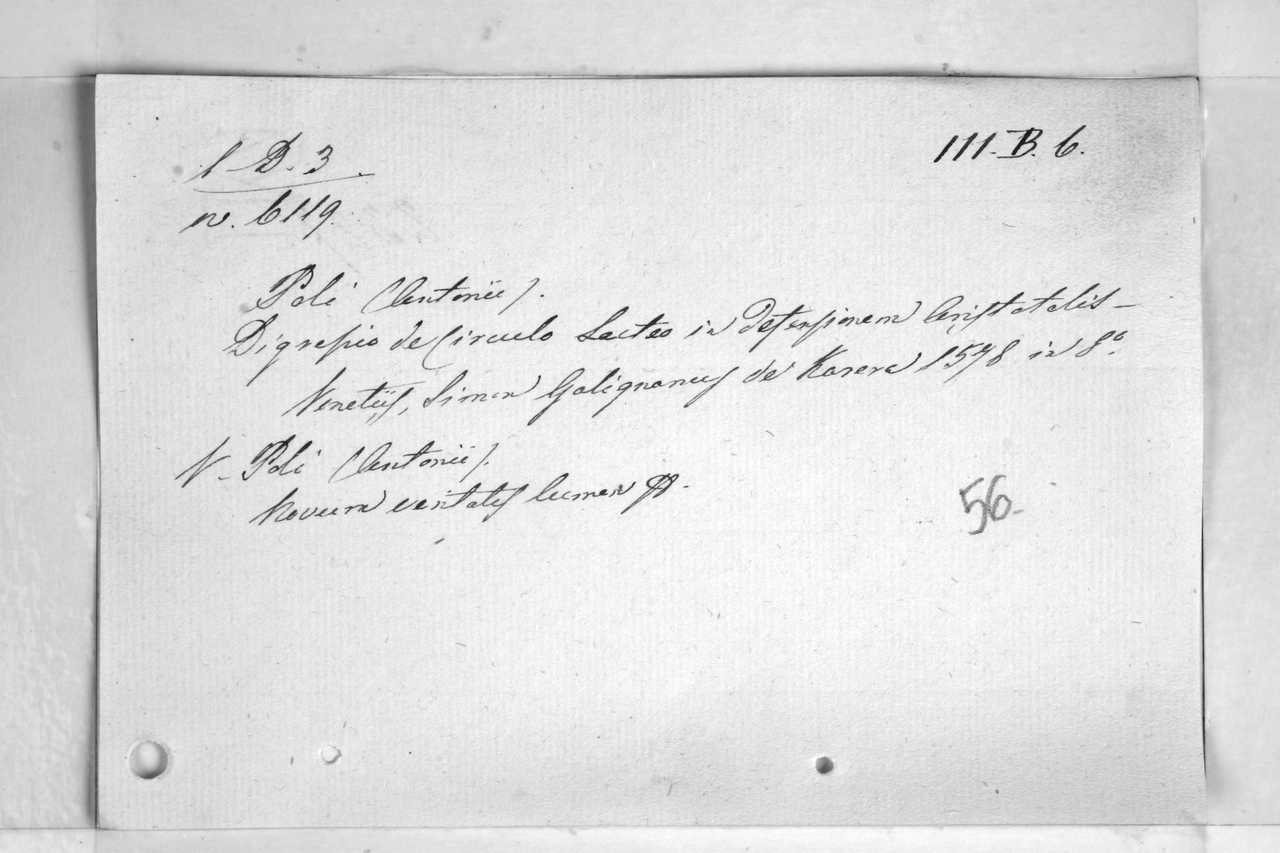 1-D.3.
n. 6119.
111.B.6.
Poli (Antonii).
Digressio de Circulo Lacteo in defensionem Aristotelis-
Venetijs, Simon Galignanus de Karera 1578 in 8º
V- Poli (Antonii).
Novum veritatis lumen
56.